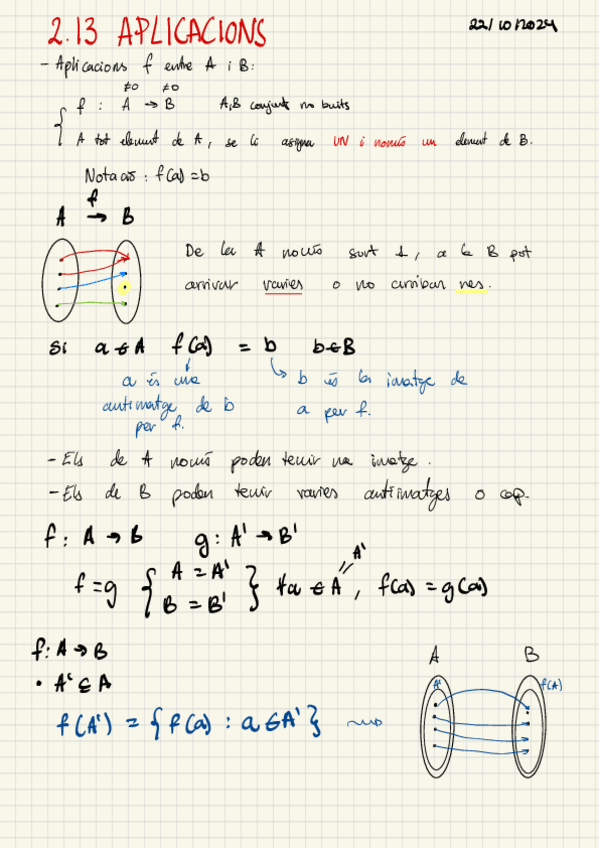 2.13 APLICACIONS
22/10/2024
- Aplicacions f entre A i B:
≠0 ≠0
f : A → B A,B conjunts no buits
A tot element de A, se li asigna UN i només un element de B.
Notació : f(a) = b
f
A → B
De la A només surt 1, a la B pot
arrivar varies o no arribar res.
Si a ∈ A f(a) = b b ∈ B
a és una
antiimatge de b
per f.
b és la imatge de
a per f.
- Els de A només poden tenir una imatge.
- Els de B poden tenir varies antiimatges o cap.
f : A → B g : A' → B'
A'
f = g { A = A'
B = B' } ∀a ∈ A , f(a) = g(a)
f : A → B
• A' ⊆ A
f(A') = { f(a) : a ∈ A' }
A B
A' f(A)